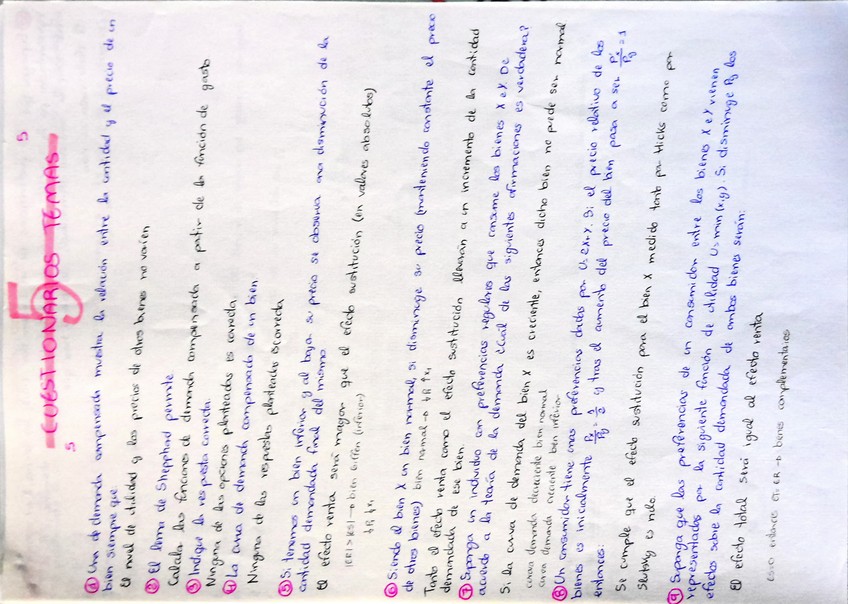 CUESTIONARIOS TEMAS
5
5
5
① Una de demanda compensada muestra la relación entre la cantidad y el precio de un
bien siempre que:
El nivel de utilidad y los precios de otros bienes no varíen
② El lema de Sheppard permite
Calcular las funciones de demanda compensada a partir de la función de gasto
③ Indique la respuesta correcta:
Ninguna de las opciones planteadas es correcta.
④ La curva de demanda compensada de un bien
Ninguna de las respuestas planteadas es correcta
⑤ Si tenemos un bien inferior y al bajar su precio se observa una disminución de la
cantidad demandada final del mismo
El efecto renta será mayor que el efecto sustitución (en valores absolutos)
|ER|>|ES| → bien Giffen (inferior)
⑥ Siendo el bien X un bien normal, si disminuye su precio (manteniendo constante el precio
de otros bienes) bien normal →
Tanto el efecto renta como el efecto sustitución llevarán a un incremento de la cantidad
demandada de ese bien.
⑦ Suponga un individuo con preferencias regulares que consume los bienes X e Y. De
acuerdo a la teoría de la demanda ¿cual de las siguientes afirmaciones es verdadera?
Si la curva de demanda del bien X es creciente, entonces dicho bien no puede ser normal
curva demanda decreciente bien normal
curva demanda creciente bien inferior
⑧ Un consumidor tiene unas preferencias dadas por U=2X+Y. Si el precio relativo de los
bienes es inicialmente Px/Py = 1/2 y tras el aumento del precio del bien pasa a ser P'x/Py = 1
entonces:
Se cumple que el efecto sustitución para el bien X medido tanto por Hicks como por
Slutsky es nulo.
⑨ Suponga que las preferencias de un consumidor entre los bienes X e Y vienen
representados por la siguiente función de utilidad U=min(x,y). Si disminuye Py los
efectos sobre la cantidad demandada de ambos bienes serán:
El efecto total será igual al efecto renta
ES=0 entonces ET=ER → bienes complementarios